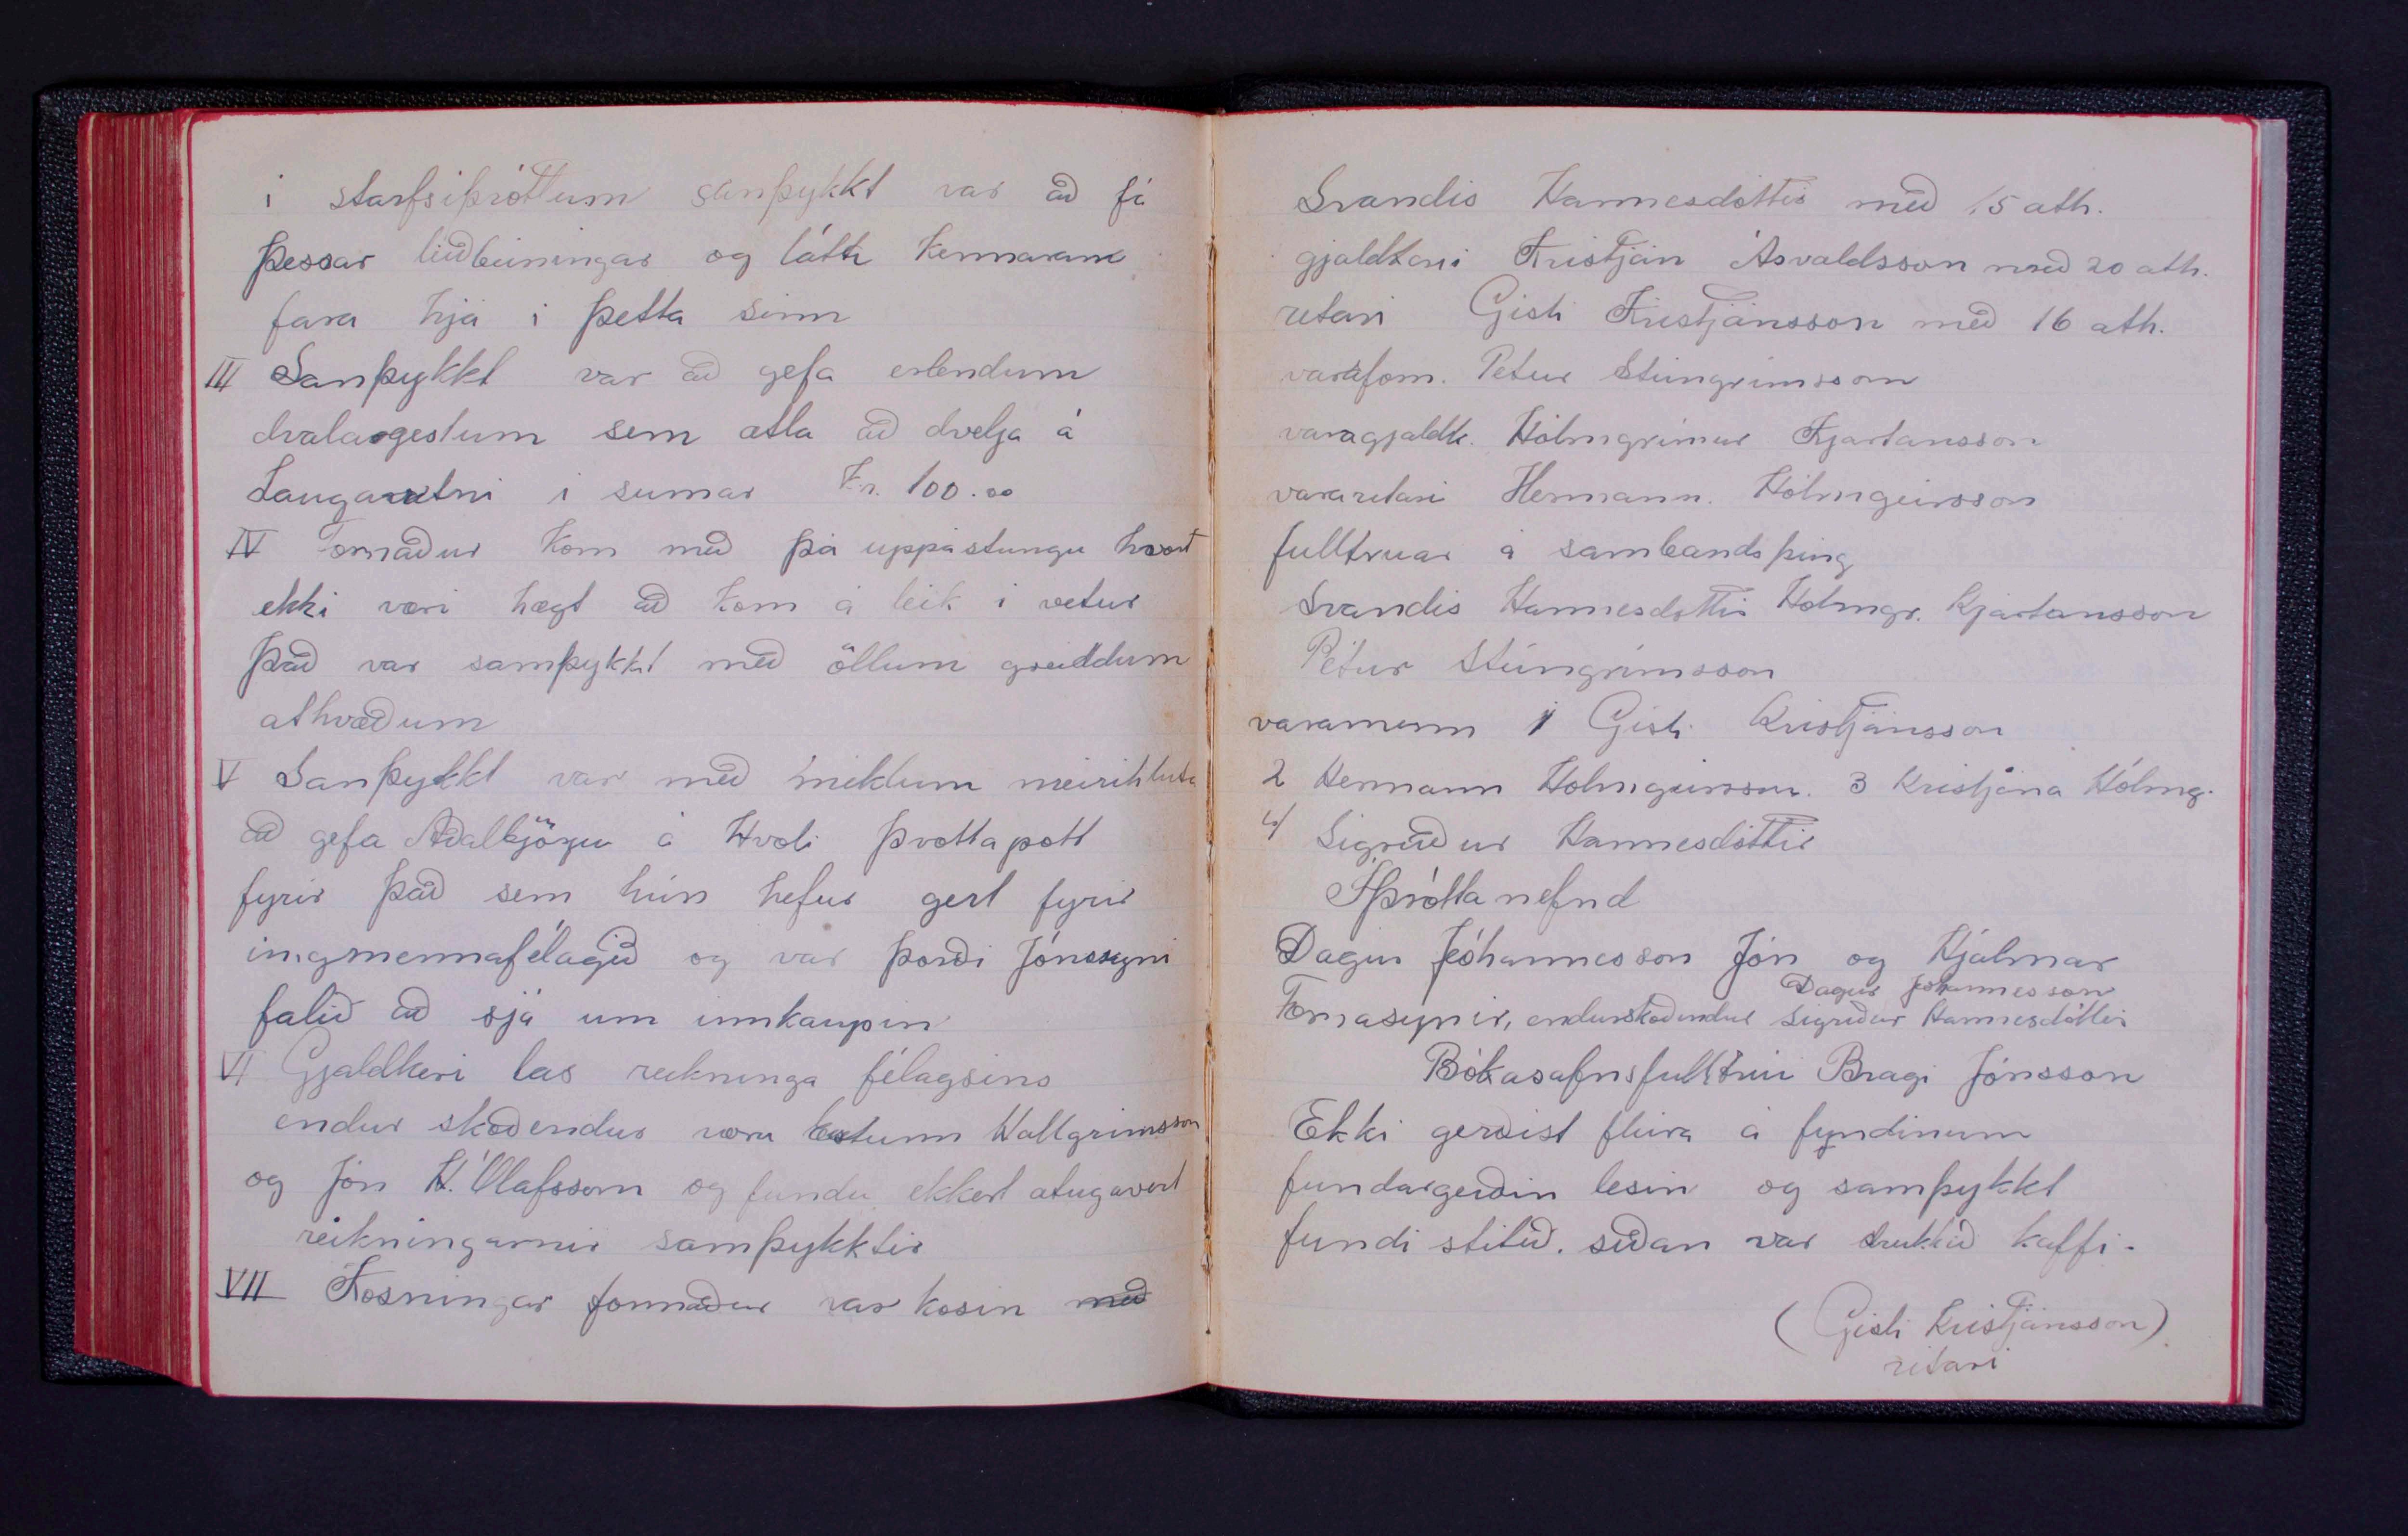 í starfsíþróttum sanþykkt var að fá
þessar leiðbeiningar og láta kennarann
fara hjá í þetta sinn
III Sanþykkt var að gefa erlendum
dvalargestum sem ætla að dvelja á
Laugarvatni í sumar Kr. 100.00
IV Formaður kom með þá uppástungu hvort
ekki væri hægt að kom á leik í vetur
Það var samþykkt með öllum greiddum
athvæðum
V Sanþykkt var með miklum meirihluta
að gefa Aðalbjörgu á Hvoli þvottapott
fyrir það sem hún hefur gert fyrir
ungmennafélagið og var Þorði Jónssyni
falið að sjá um innkaupin
VI Gjaldkeri las reikninga félagsins
endur skoðendur voru Hallgrimsson
og Jón H. Ólafsson og fundu ekkert atugavert
reikningarnir samþykktir
VII Kosningar formaður var kosin með
Svandís Hannesdóttir með 15 ath.
gjaldkeri Kristján Ásvaldsson með 20 ath.
ritari Gisli Kristjánsson með 16 ath.
varafom. Petur Steingrimsson
varagjaldk. Hólmgrimur Kjartansson
vararitari Hermann. Hólmgeirsson
fulltruar á sambandsþing
Svandis Hannesdóttir Holmgr. Kjartansson
Pétur Steingrímsson
varamenn 1 Gisli Kristjánsson
2 Hermann Holmgeirsson. 3 Kristjána Hólmg.
4) Sigríður Hannesdóttir
Íþrótta nefnd
Dagur Jóhannesson Jón og Hjálmar
Dagur Jóhannesson
Tómasynir, endurskoðendur Sigríður Hannesdóttir
Bókasafnsfulltrúi Bragi Jónsson
Ekki gerðist fleira á fundinum
fundargerðin lesin og samþykkt
fundi slitið. síðan var drukkið kaffi.
(Gísli Kristjánsson)
ritari